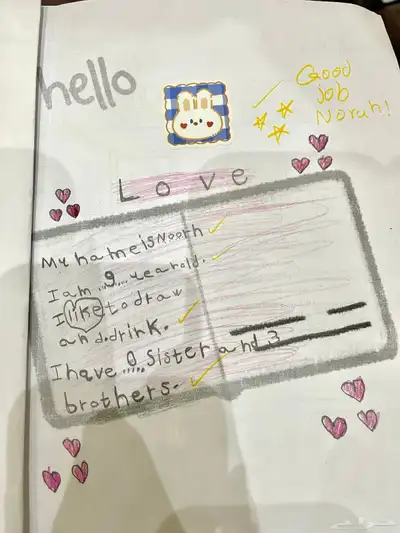 hello
Good
job
Norah!
Love
My name is Noorh
I am ..9.. year old.
I like to draw
and drink.
I have ..0.. Sister and 3
brothers.